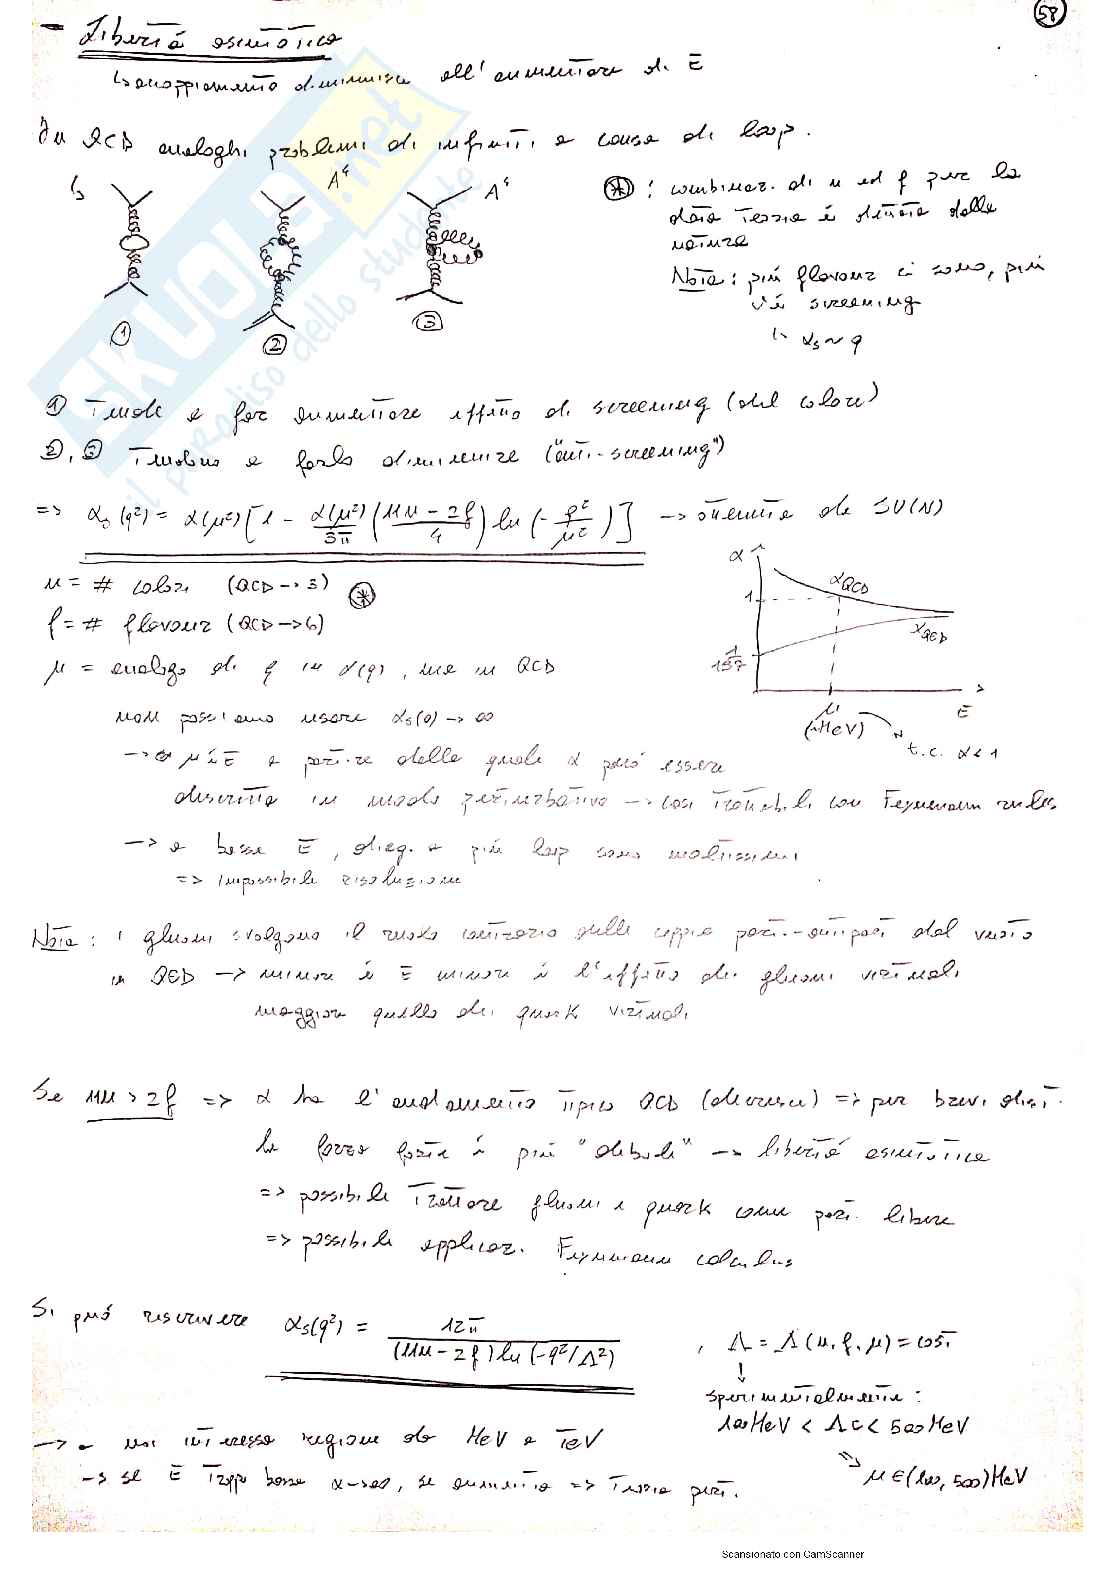 58
- Libertà asintotica
↳ accoppiamento diminuisce all'aumentare di E
In QCD analoghi problemi di infiniti a causa di loop.
↳
A⁴
A⁴
① ② ③
⊛ : combinaz. di n ed f per la
data teoria è dettata dalla
natura
Nota: più flavour ci sono, più
c'è screening
↳ αs ~ q
① Tende a far aumentare effetto di screening (del colore)
②, ③ Tendono a farlo diminuire ("anti-screening")
=> αs(q²) = α(μ²) [1 - α(μ²)/3π (11n - 2f / 4) ln (-q²/μ²)] → ottenuta da SU(N)
n = # colori (QCD → 3) ⊛
f = # flavour (QCD → 6)
μ = analogo di q in α(q), ma in QCD
non possiamo usare αs(0) → ∞
→ μ è E a partire dalla quale α può essere
descritta in modo perturbativo → così trattabili con Feynmann rules
→ a basse E, diag. a più loop sono moltissimi
=> impossibile risoluzione
α
1
1/137
αQCD
αQED
μ
(~MeV)
E
t.c. α < 1
Nota: i gluoni svolgono il ruolo contrario delle coppie part.-antipart dal vuoto
in QED → minore è E minore è l'effetto dei gluoni virtuali
maggiore quello dei quark virtuali
Se 11n > 2f => α ha l'andamento tipico QCD (decresce) => per brevi dist.
la forza forte è più "debole" → libertà asintotica
=> possibile trattare gluoni e quark come part. libere
=> possibile applicaz. Feynmann calculus
Si può riscrivere αs(q²) = 12π / (11n - 2f) ln(-q²/Λ²) , Λ = Λ(n, f, μ) = cost
↓
sperimentalmente:
100 MeV < Λc < 500 MeV
=> μ ∈ (100, 500) MeV
→ a noi interessa regione da MeV a TeV
→ se E troppo bassa α→∞, se aumenta => Teoria pert.
SKUOLA.net
il paradiso dello studente
Scansionato con CamScanner